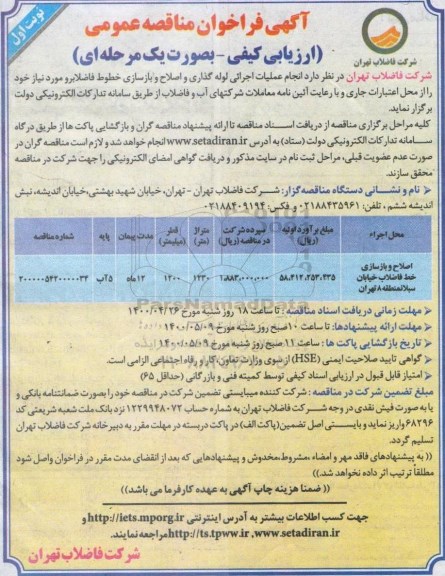 نوبت اول
آگهی فراخوان مناقصه عمومی
(ارزیابی کیفی - بصورت یک مرحله ای)
شرکت فاضلاب تهران
شرکت فاضلاب تهران در نظر دارد انجام عملیات اجرائی لوله گذاری و اصلاح و بازسازی خطوط فاضلابرو مورد نیاز خود
را از محل اعتبارات جاری و با رعایت آئین نامه معاملات شرکتهای آب و فاضلاب از طریق سامانه تدارکات الکترونیکی دولت
برگزار نماید.
کلیه مراحل برگزاری مناقصه از دریافت اسناد مناقصه تا ارائه پیشنهاد مناقصه گران و بازگشایی پاکت ها از طریق درگاه
سامانه تدارکات الکترونیکی دولت (ستاد) به آدرس www.setadiran.ir انجام خواهد شد و لازم است مناقصه گران در
صورت عدم عضویت قبلی، مراحل ثبت نام در سایت مذکور و دریافت گواهی امضای الکترونیکی را جهت شرکت در مناقصه
محقق سازند.
• نام و نشانی دستگاه مناقصه گزار: شرکت فاضلاب تهران - تهران، خیابان شهید بهشتی، خیابان اندیشه، نبش
اندیشه ششم، تلفن: ۰۲۱۸۸۴۳۵۹۶۱ و فکس: ۰۲۱۸۸۴۰۹۱۹۴
محل اجراء مبلغ برآورد اولیه (ریال) سپرده شرکت در مناقصه (ریال) متراژ (متر) قطر (میلیمتر) مدت پیمان پایه شماره مناقصه
اصلاح و بازسازی خط فاضلاب خیابان سبلان منطقه ۸ تهران ۵۸,۴۱۲,۲۵۳,۴۳۵ ۱,۸۸۳,۰۰۰,۰۰۰ ۱۲۳۰ ۱۲۰۰ ۱۲ماه ۵آب
ParsNamadData
• مهلت زمانی دریافت اسناد مناقصه: تا ساعت ۱۸ روز شنبه مورخ ۱۴۰۰/۰۴/۲۶
• مهلت ارائه پیشنهادها: تا ساعت ۱۰ صبح روز شنبه مورخ ۱۴۰۰/۰۵/۰۹
• تاریخ بازگشایی پاکت ها: ساعت ۱۱ صبح روز شنبه مورخ ۱۴۰۰/۰۵/۰۹
• گواهی تایید صلاحیت ایمنی (HSE) از سوی وزارت تعاون، کار و رفاه اجتماعی الزامی است.
• امتیاز قابل قبول در ارزیابی اسناد کیفی توسط کمیته فنی و بازرگانی (حداقل ۶۵)
مبلغ تضمین شرکت در مناقصه: شرکت کننده میبایستی تضمین شرکت در مناقصه خود را بصورت ضمانتنامه بانکی و
یا به صورت فیش نقدی در وجه شرکت فاضلاب تهران به شماره حساب ۱۲۲۹۹۴۸۰۷۲ نزد بانک ملت شعبه شریعتی کد
۶۸۲۹۶ واریز نماید و بایستی اصل تضمین (پاکت الف) در پاکت دربسته در مهلت مقرر به دبیرخانه شرکت فاضلاب تهران
تسلیم گردد.
(( به پیشنهادهای فاقد مهر و امضاء، مشروط، مخدوش و پیشنهادهایی که بعد از انقضای مدت مقرر در فراخوان واصل شود
مطلقاً ترتیب اثر داده نخواهد شد.))
(( ضمنا هزینه چاپ آگهی به عهده کارفرما می باشد))
جهت کسب اطلاعات بیشتر به آدرس اینترنتی http://iets.mporg.ir و
http://ts.tpww.ir ,www.setadiran.ir مراجعه نمایند.
شرکت فاضلاب تهران